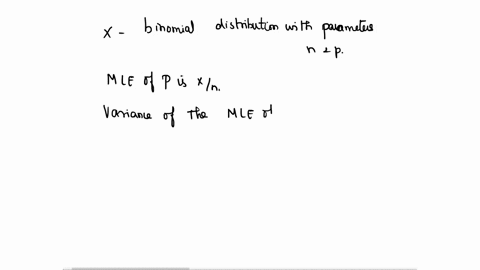 X - binomial distribution with parameters
n & p.
MLE of p is x/n.
Variance of the MLE of